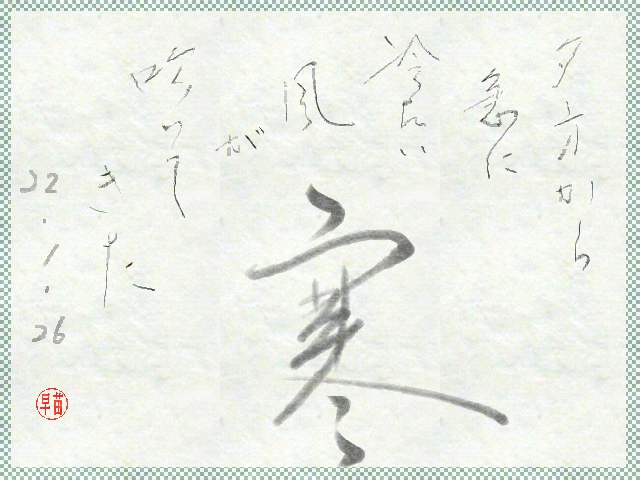 夕方から
急に
冷たい
風
が
寒
吹いて
きた
22.1.26
早苗